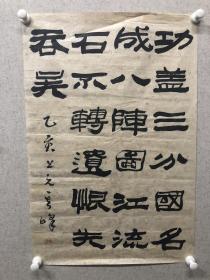 功盖三分國名
成八陣圖江流
石不轉遺恨失
吞吴
乙亥上元峰